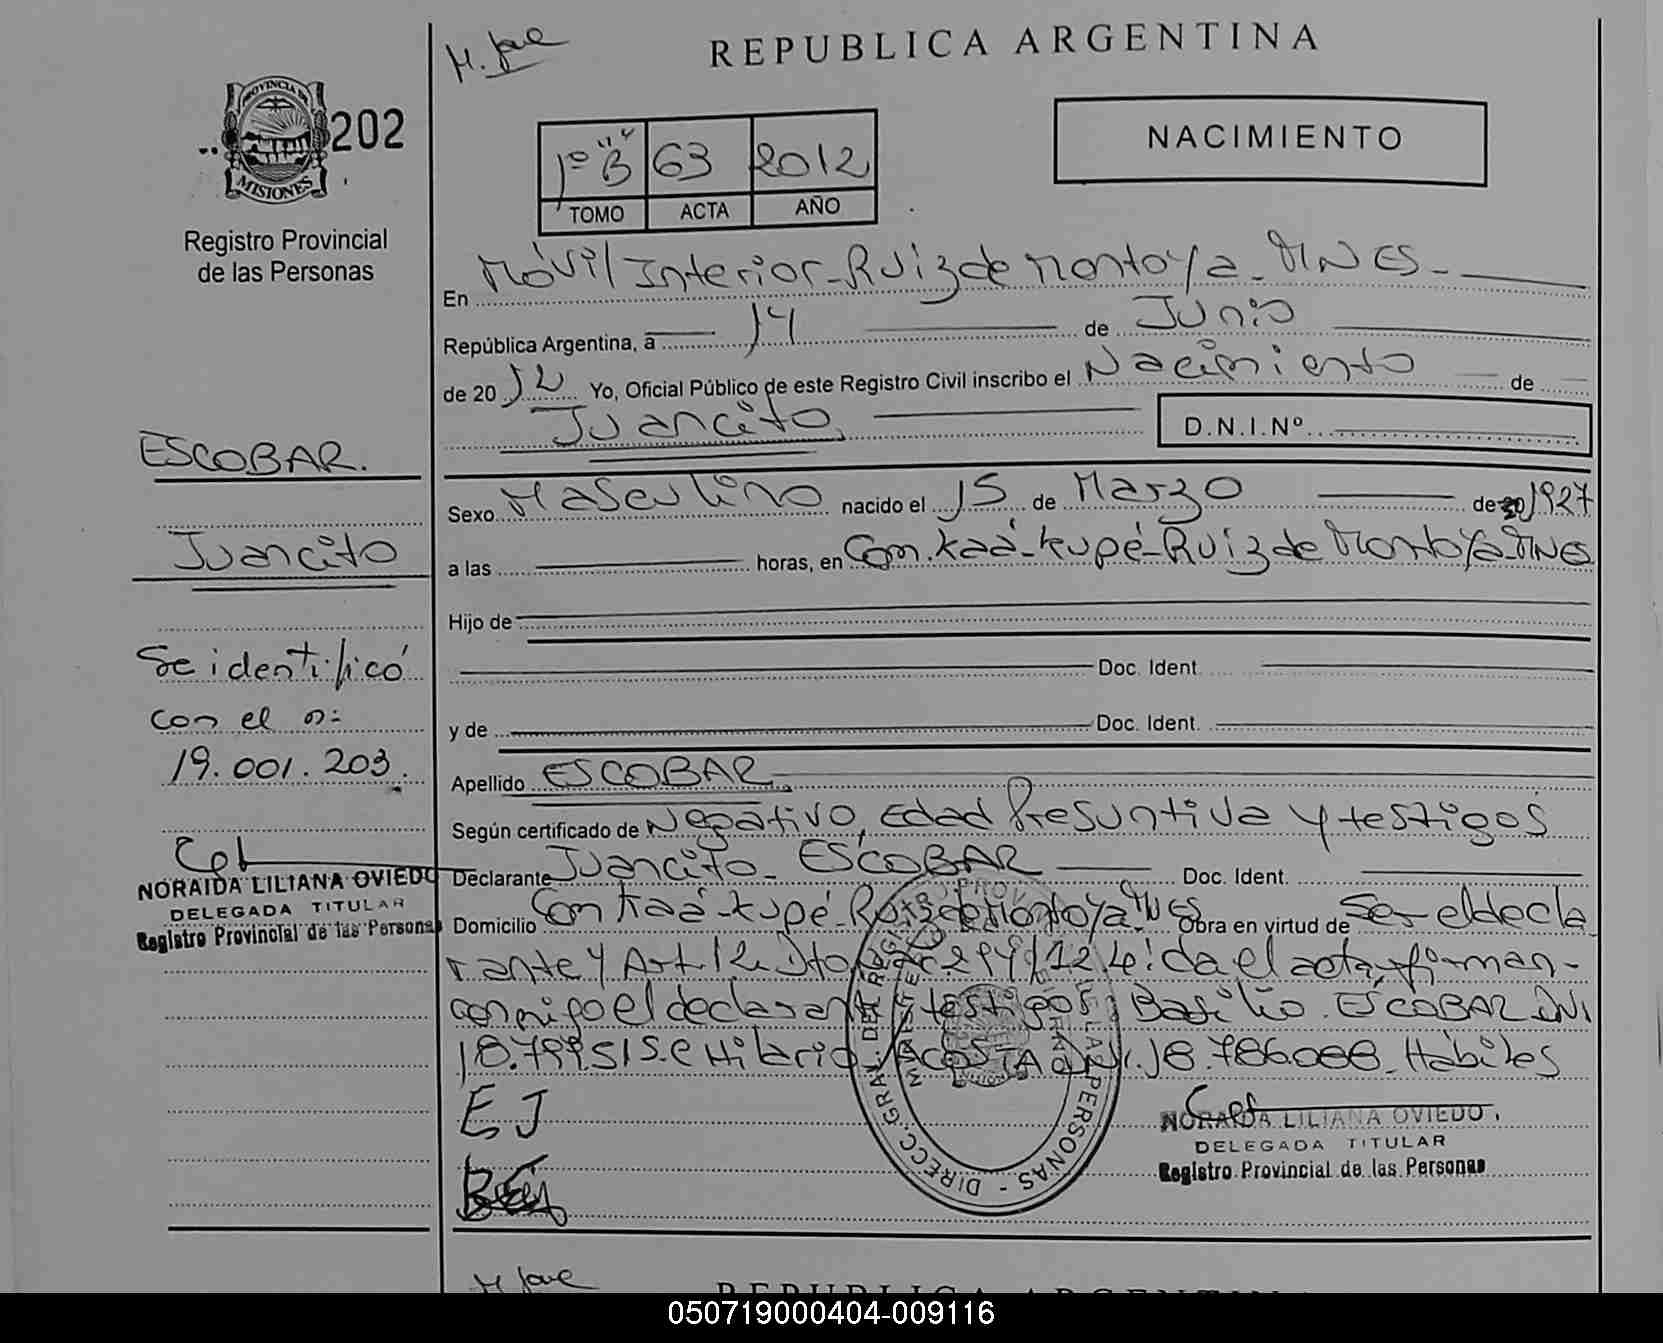 H. Jove
REPUBLICA ARGENTINA
PROVINCIA DE
MISIONES
202
Registro Provincial
de las Personas
1º "B" 63 2012
TOMO ACTA AÑO
NACIMIENTO
En Móvil Interior-Ruiz de Montoya-MNES-
República Argentina, a 14 de Junio
de 2012 Yo, Oficial Público de este Registro Civil inscribo el Nacimiento de
Juancito D.N.I.Nº
ESCOBAR.
Juancito
Se identificó
con el n:
19.001.203
NORAIDA LILIANA OVIEDO
DELEGADA TITULAR
Registro Provincial de las Personas
Sexo Masculino nacido el 15 de Marzo de 20 1927
a las horas, en Com. kaá-kupé-Ruiz de Montoya-MNES
Hijo de
Doc. Ident.
y de Doc. Ident.
Apellido ESCOBAR
Según certificado de Negativo, Edad Presuntiva y testigos
Declarante Juancito ESCOBAR Doc. Ident.
Domicilio Com kaá-kupé-Ruiz de Montoya-MNES Obra en virtud de Ser el decla
rante y Art. 12 Dto. Leída el acta, firman
conmigo el declarante testigos: Basilio ESCOBAR DNI
18.799515 e Hilario ACOSTA DNI. 18.786.088. Hábiles
EJ
NORAIDA LILIANA OVIEDO
DELEGADA TITULAR
Registro Provincial de las Personas
DIRECC. GRAL. DEL REGISTRO PROV. DE LAS PERSONAS
H Jove
REPUBLICA ARGENTINA
050719000404-009116